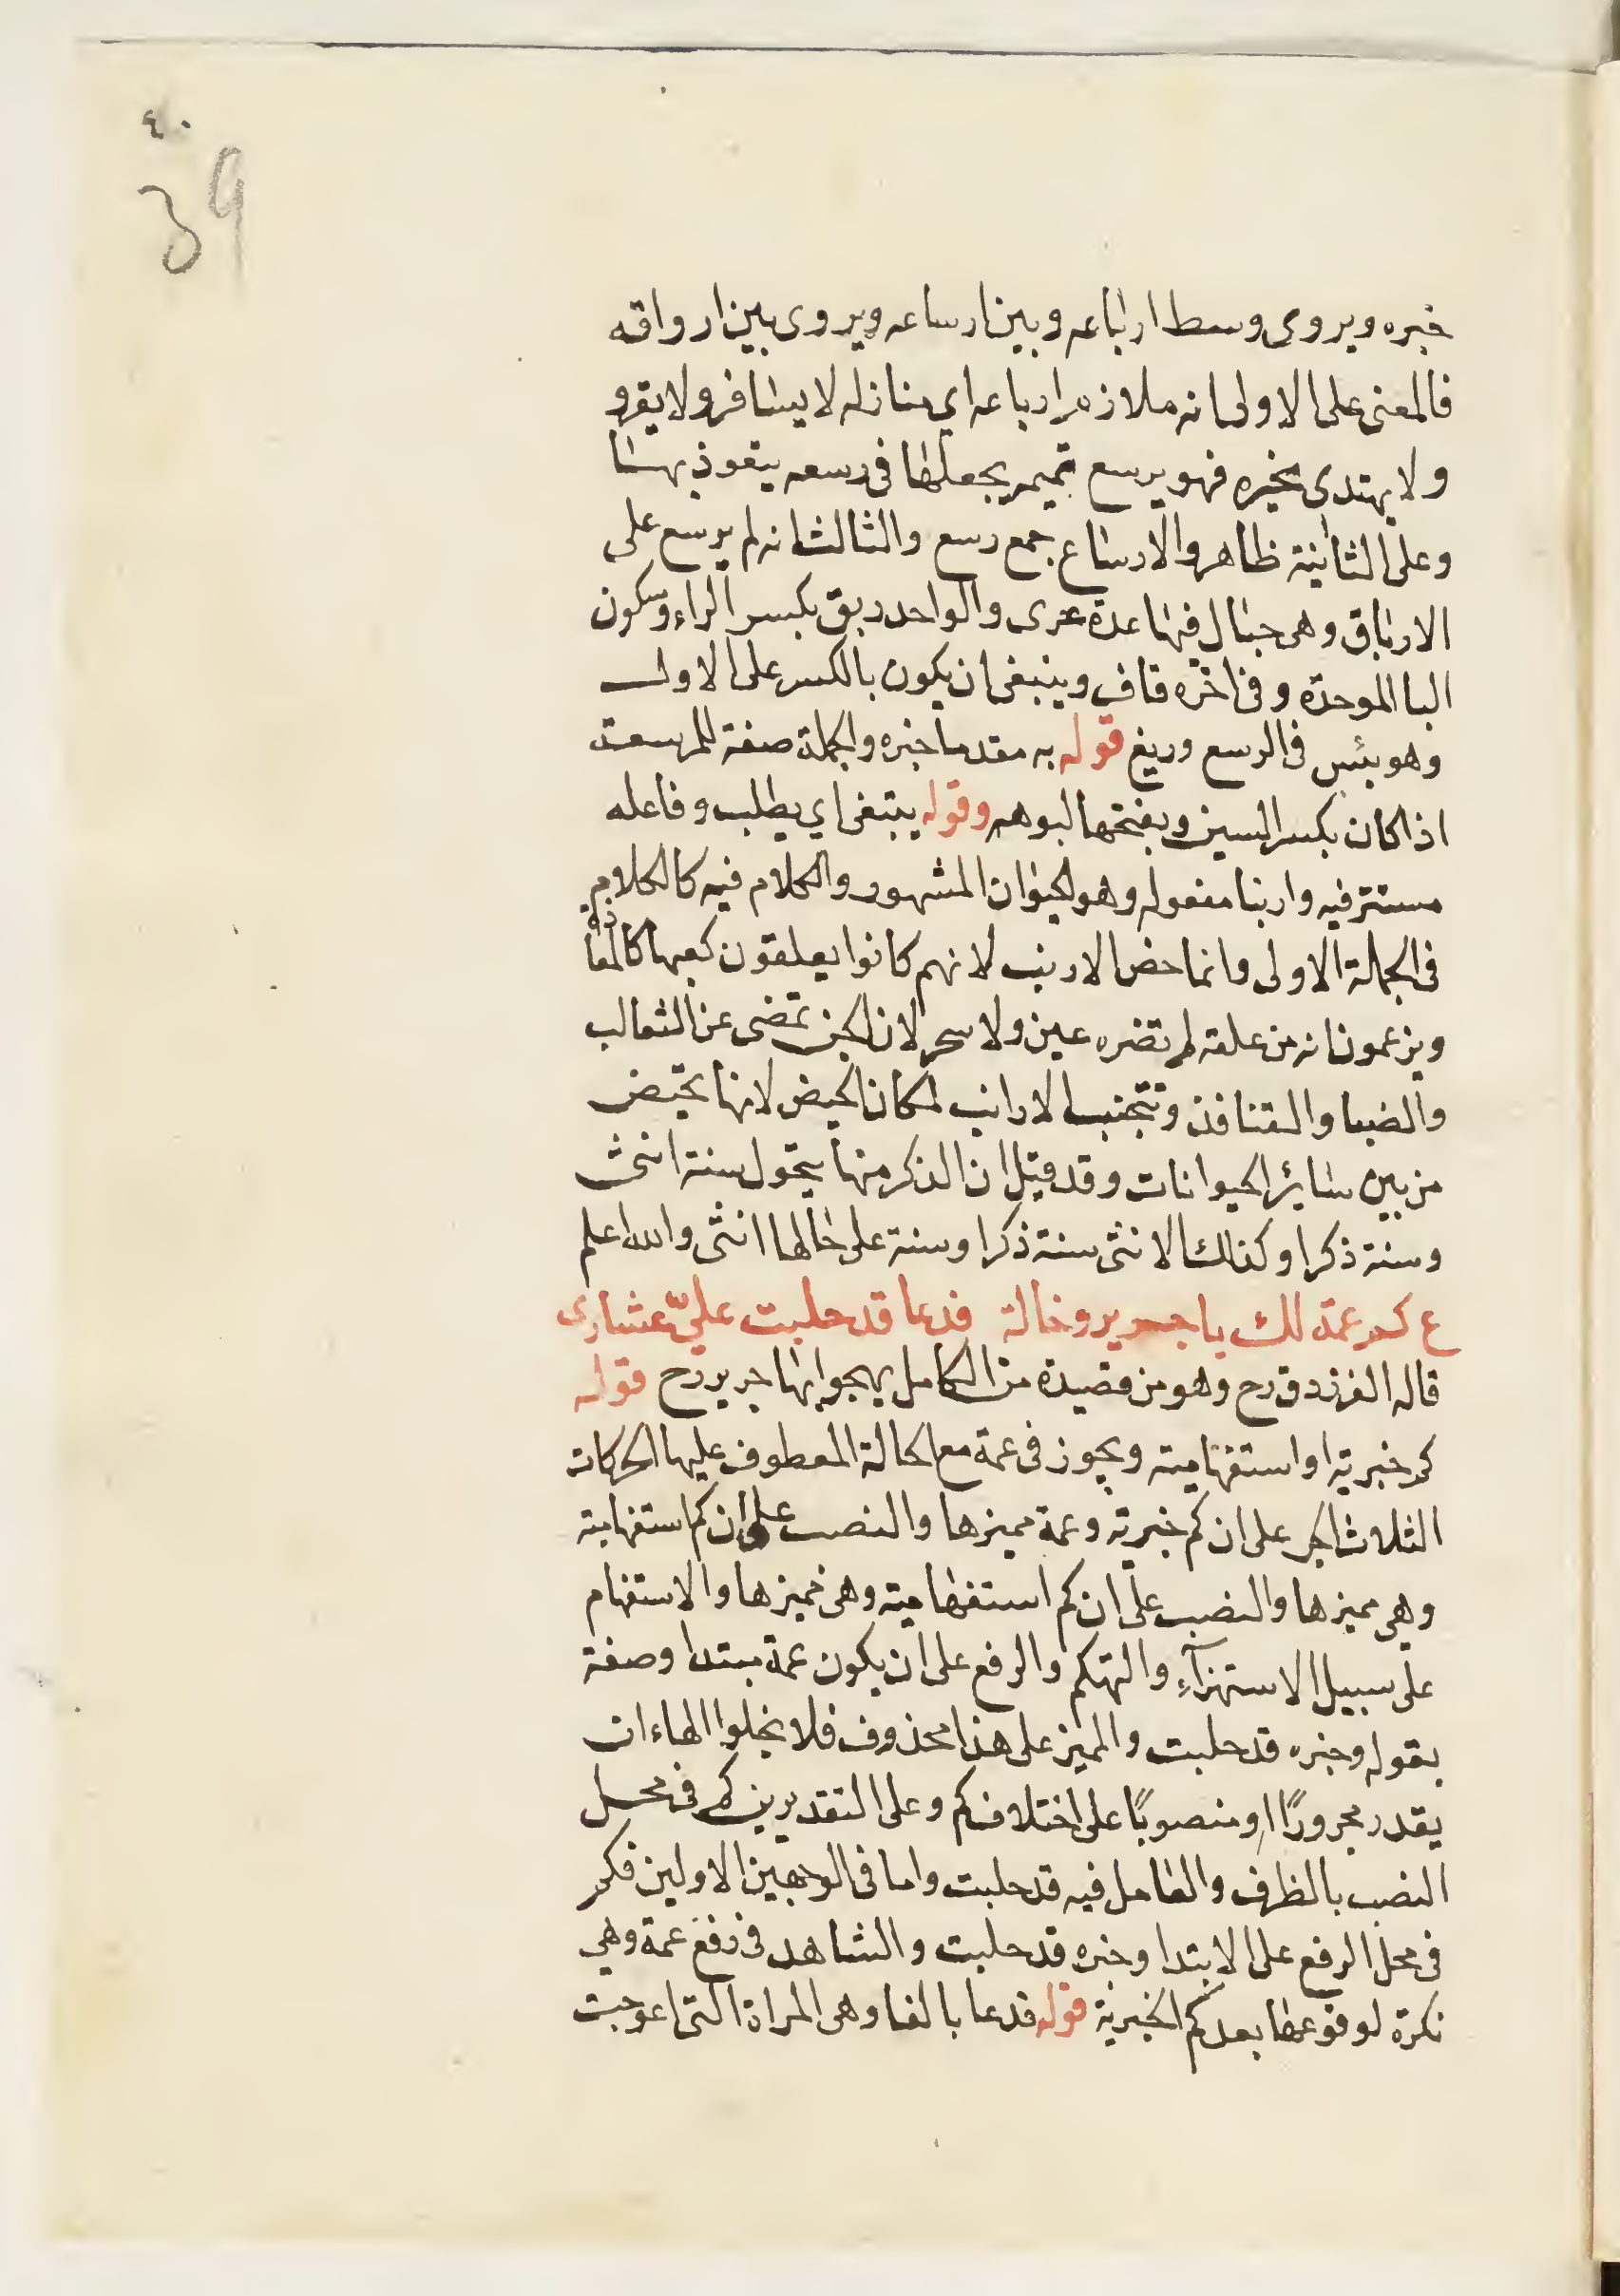 ٤٠
39
خبره ويروى وسط ارباعه وبين ارساعه ويروى بين ارواقه
فالمعنى على الاولى انه ملازم ارباعه اي منازله لا يسافر ولا يقرو
ولا يهتدى بخيره فهو يرسع تميمه يجعلها في رسعه يتعوذ بها
وعلى الثانية ظاهر والارساع جمع رسع والثالث انه لم يرسع على
الارباق وهى حبال فيها عدة عرى والواحد ربق بكسر الراء وسكون
البا الموحدة وفى اخره قاف وينبغى ان يكون بالكسر على الاول
وهو بئس فى الرسع وريغ قوله به مقدما خبره والجملة صفة للمرسعة
اذا كان بكسر السين وبفتحها لبوهه وقوله يبتغى اي يطلب وفاعله
مستتر فيه واربنا مفعوله وهو الحيوان المشهور والكلام فيه كالكلام
فى الجملة الاولى وانما خص الارنب لانهم كانوا يعلقون كعبها كالمعاذه
ويزعمون انه من علقه لم تضره عين ولا سحر لان الجن تمضى عن الثعالب
والضبا والقنافذ وتتجنب الارانب لمكان الحيض لانها تحيض
من بين سائر الحيوانات وقد قيل ان الذكر منها يتحول سنة انثى
وسنة ذكرا وكذلك الانثى سنة ذكرا وسنة على حالها انثى والله اعلم
ع كم عمة لك ياجرير وخالة فدعا قد حلبت علىّ عشارى
قاله الفرزدق رح وهو من قصيدة من الكامل يهجو بها جرير رح قوله
كم خبرية او استفهامية ويجوز فى عمة مع الخالة المعطوف عليها الحركات
الثلاث الجر على ان كم خبرية وعمة مميزها والنصب على ان كم استفهامية
وهى مميزها والنصب على ان كم استفهامية وهى مميزها والاستفهام
على سبيل الاستهزآء والتهكم والرفع على ان يكون عمة مبتدا وصفة
بقوله وخبره قد حلبت والمميز على هذا محذوف فلا يخلوا الهاء ان
يقدر مجرورًا او منصوبًا على اختلاف كم وعلى التقديرين كم فى محل
النصب بالظرف والعامل فيه قد حلبت واما فى الوجهين الاولين فكم
فى محل الرفع على الابتدا وخبره قد حلبت والشاهد فى رفع عمة وهى
نكرة لوقوعها بعد كم الخبرية قوله فدعا بالفا وهى المراة التى اعوجت